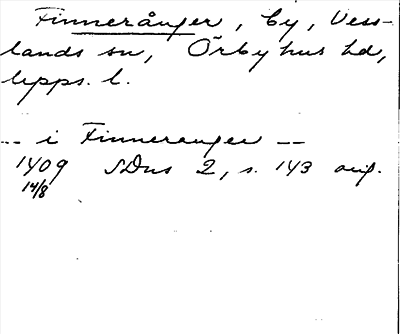 Finnerånger, by, Vess-
lands sn, Örbyhus hd,
Upps. l.
-- i Finneranger --
1409 SDns 2, s. 143 orig.
14/8